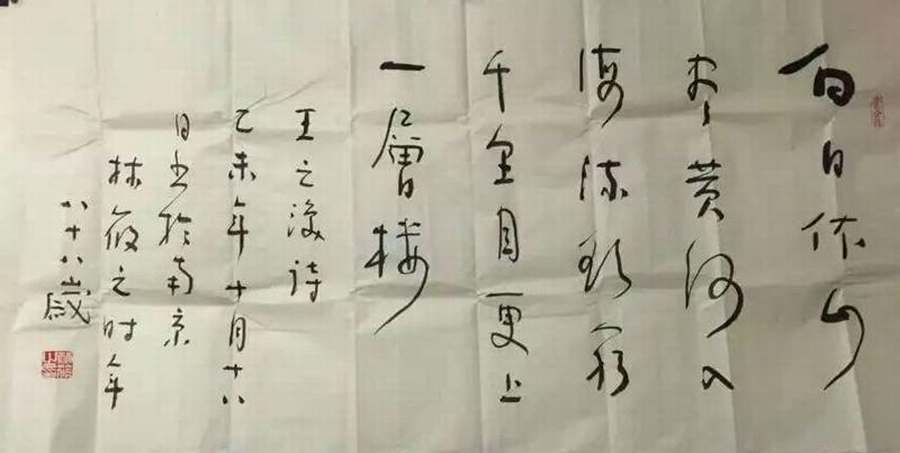 白日依山
尽黄河入
海流欲穷
千里目更上
一層楼
王之涣诗
乙未年十月十八
日书於南京
林筱之时年
八十八歲